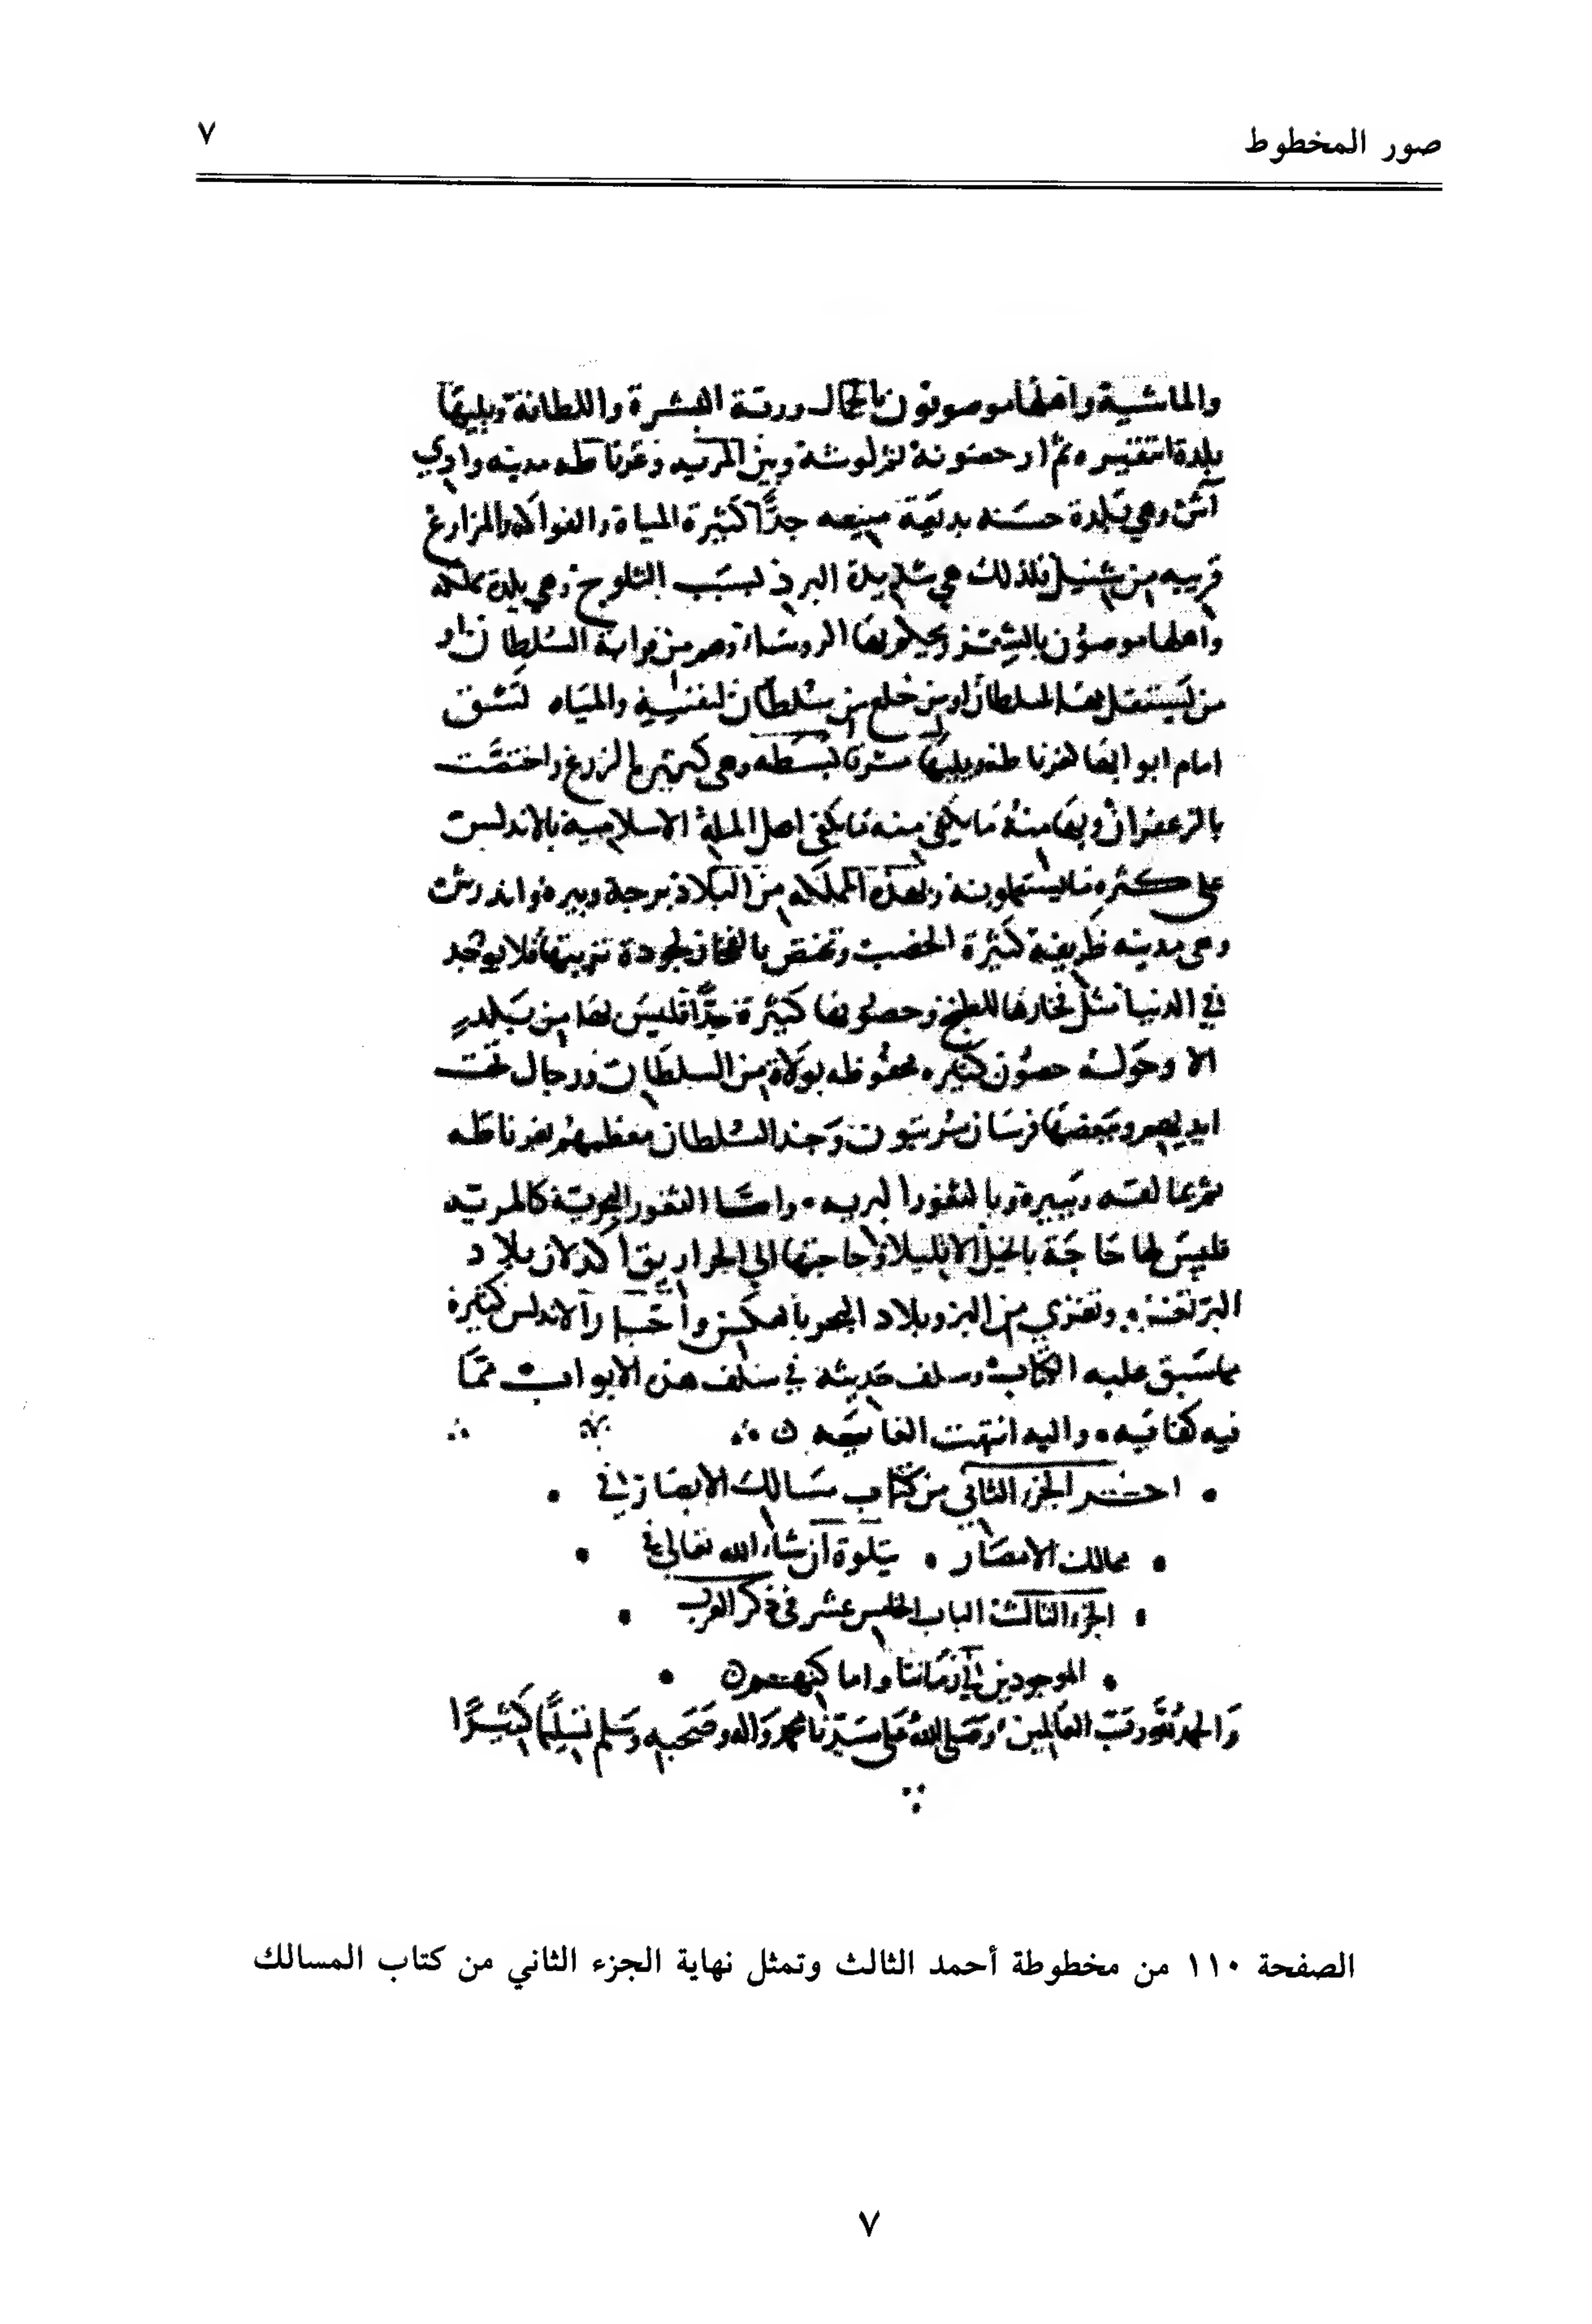 صور المخطوط
٧
والماشية واهلها موصوفون بالجمال ورقة البشرة واللطافة ويليها
بلدة انتقيره ثم ارحصونة ثم لوشة وبين المريه وغرناطه مدينه وادي
آش وهي بلدة حسنه بديعة منيعه جدًّا كثيرة المياه والفواكه والمزارع
قريبه من شنيل فلذلك هي شديدة البرد بسبب الثلوج وهي بلدة مملكه
واهلها موصوفون بالشعر ويحكم بها الروساء وهم من قرابة السلطان او
من يستقل بها السلطان او من خلع من سلطان لنفسه والمياه تشق
امام ابوابها لغرناطه ويليها شرقا بسطه وهي كثيرة الزرع واختصت
بالزعفران وبها منه ما يكفي منه ما يكفي اهل الملة الاسلاميه بالاندلس
على كثره ما يستعملونه وبهذه المملكه من البلاد برجة وبيره واندرش
وهي مدينه ظريفة كثيرة الخصب وتختص بالفخار لجودة تربتها فلا يوجد
في الدنيا مثل فخارها للطبخ وحصونها كثيرة جدًّا فليس بها من بلد
الا وحوله حصون كثيره محفوظه بولاة من السلطان ورجال تحت
ايديهم وبعضها فرسان مرتبون وجند السلطان معظمهم بغرناطه
ثم بمالقه وبيرة وبالثغور البريه واما الثغور البحرية كالمريه
فليس لها حاجة بالخيل الا قليلا وحاجتها الى الجواري اكد لان بلاد
البر تغزى وتغزي من البر وبلاد البحر بالعكس واخبار الاندلس كثيرة
مما سبق عليه الكتاب وسلف حديثه في سالف هذه الابواب مما
فيه كفايه واليه انتهت الغايه
اخر الجزء الثاني من كتاب مسالك الابصار في
ممالك الامصار يتلوه ان شاء الله تعالى في
الجزء الثالث الباب الخامس عشر في ذكر العرب
الموجودين في زماننا واماكنهم
والحمد لله رب العالمين وصلى الله على سيدنا محمد واله وصحبه وسلم تسليمًا كثيرًا
الصفحة ١١٠ من مخطوطة أحمد الثالث وتمثل نهاية الجزء الثاني من كتاب المسالك
٧